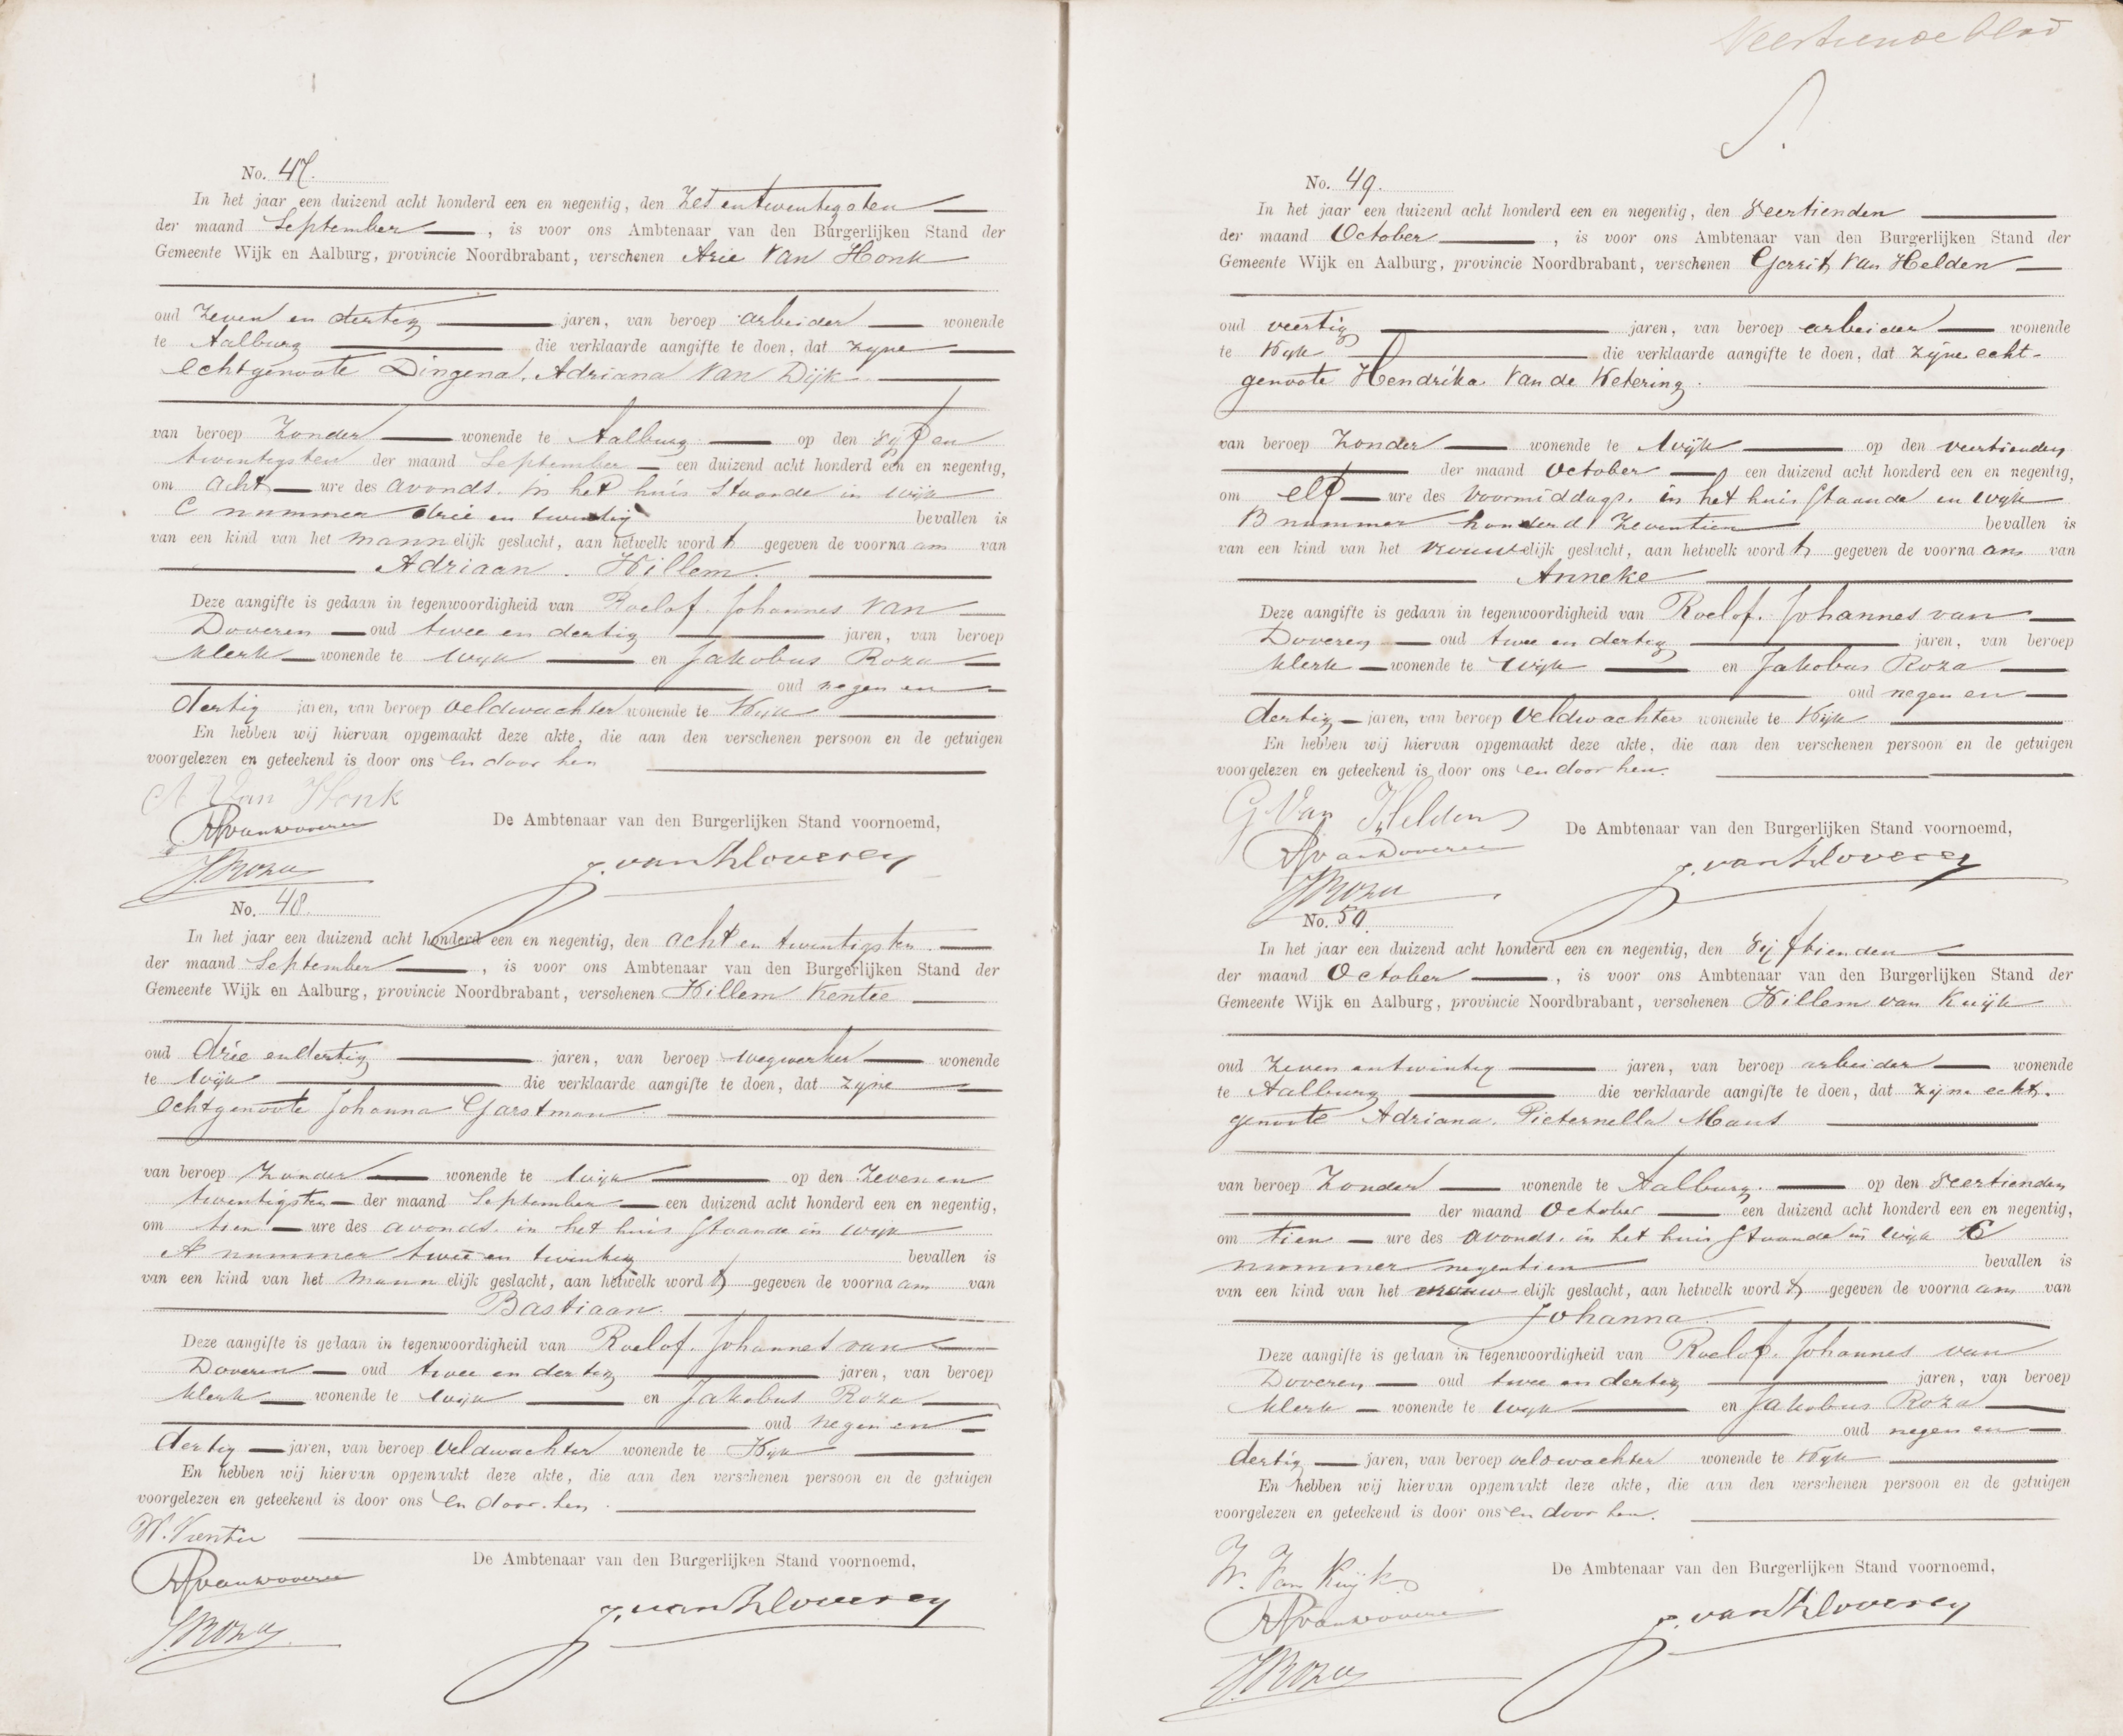 No. 47.
In het jaar een duizend acht honderd een en negentig, den Zes en twentigsten
der maand September, is voor ons Ambtenaar van den Burgerlijken Stand der
Gemeente Wijk en Aalburg, provincie Noordbrabant, verschenen Arie Van Honk
oud Zeven en dertig jaren, van beroep arbeider wonende
te Aalburg die verklaarde aangifte te doen, dat zijne
echtgenoote Dingena. Adriana Van Dijk
van beroep Zonder wonende te Aalburg op den vijf en
twentigsten der maand September een duizend acht honderd een en negentig,
om acht ure des avonds. in het huis staande in wijk
C nummer drie en twentig bevallen is
van een kind van het mannelijk geslacht, aan hetwelk wordt gegeven de voornaam van
Adriaan. Willem.
Deze aangifte is gedaan in tegenwoordigheid van Roelof. Johannes van
Doveren oud twee en dertig jaren, van beroep
klerk wonende te Wijk en Jakobus Roza
oud negen en
dertig jaren, van beroep veldwachter wonende te Wijk
En hebben wij hiervan opgemaakt deze akte, die aan den verschenen persoon en de getuigen
voorgelezen en geteekend is door ons en door hen
A Van Honk
RJvanDoveren
De Ambtenaar van den Burgerlijken Stand voornoemd,
JRoza
J. van Kloverey
No. 48.
In het jaar een duizend acht honderd een en negentig, den acht en twentigsten
der maand September, is voor ons Ambtenaar van den Burgerlijken Stand der
Gemeente Wijk en Aalburg, provincie Noordbrabant, verschenen Willem Kentie
oud drie en dertig jaren, van beroep wegwerker wonende
te Wijk die verklaarde aangifte te doen, dat zijne
echtgenoote Johanna Garstman
van beroep Zonder wonende te Wijk op den Zeven en
twentigsten der maand September een duizend acht honderd een en negentig,
om tien ure des avonds. in het huis staande in wijk
A nummer twee en twintig bevallen is
van een kind van het mannelijk geslacht, aan hetwelk wordt gegeven de voornaam van
Bastiaan.
Deze aangifte is gedaan in tegenwoordigheid van Roelof. Johannes van
Doveren oud twee en dertig jaren, van beroep
klerk wonende te Wijk en Jakobus Roza
oud negen en
dertig jaren, van beroep veldwachter wonende te Wijk
En hebben wij hiervan opgemaakt deze akte, die aan den verschenen persoon en de getuigen
voorgelezen en geteekend is door ons en door hen
W. Kentie
De Ambtenaar van den Burgerlijken Stand voornoemd,
RJvanDoveren
JRoza
J. van Kloverey
Veertiende blad
No. 49.
In het jaar een duizend acht honderd een en negentig, den veertienden
der maand October, is voor ons Ambtenaar van den Burgerlijken Stand der
Gemeente Wijk en Aalburg, provincie Noordbrabant, verschenen Gerrit Van Helden
oud veertig jaren, van beroep arbeider wonende
te Wijk die verklaarde aangifte te doen, dat zijne echt-
genoote Hendrika Van de Wetering.
van beroep Zonder wonende te Wijk op den veertienden
der maand October een duizend acht honderd een en negentig,
om elf ure des voormiddags. in het huis staande in wijk
B nummer honderd zeventien bevallen is
van een kind van het vrouwelijk geslacht, aan hetwelk wordt gegeven de voornaam van
Anneke
Deze aangifte is gedaan in tegenwoordigheid van Roelof. Johannes van
Doveren oud twee en dertig jaren, van beroep
klerk wonende te Wijk en Jakobus Roza
oud negen en
dertig jaren, van beroep veldwachter wonende te Wijk
En hebben wij hiervan opgemaakt deze akte, die aan den verschenen persoon en de getuigen
voorgelezen en geteekend is door ons en door hen.
G Van Helden
De Ambtenaar van den Burgerlijken Stand voornoemd,
RJvanDoveren
J. van Kloverey
JRoza
No. 50.
In het jaar een duizend acht honderd een en negentig, den vijftienden
der maand October, is voor ons Ambtenaar van den Burgerlijken Stand der
Gemeente Wijk en Aalburg, provincie Noordbrabant, verschenen Willem van Kuijk
oud Zeven en twintig jaren, van beroep arbeider wonende
te Aalburg die verklaarde aangifte te doen, dat zijne echt-
genoote Adriana. Pieternella Maus
van beroep Zonder wonende te Aalburg. op den veertienden
der maand October een duizend acht honderd een en negentig,
om tien ure des avonds. in het huis staande in wijk C
nummer negentien bevallen is
van een kind van het vrouwelijk geslacht, aan hetwelk wordt gegeven de voornaam van
Johanna.
Deze aangifte is gedaan in tegenwoordigheid van Roelof. Johannes van
Doveren oud twee en dertig jaren, van beroep
klerk wonende te Wijk en Jakobus Roza
oud negen en
dertig jaren, van beroep veldwachter wonende te Wijk
En hebben wij hiervan opgemaakt deze akte, die aan den verschenen persoon en de getuigen
voorgelezen en geteekend is door ons en door hen.
W. Van Kuijk
De Ambtenaar van den Burgerlijken Stand voornoemd,
RJvanDoveren
J. van Kloverey
JRoza